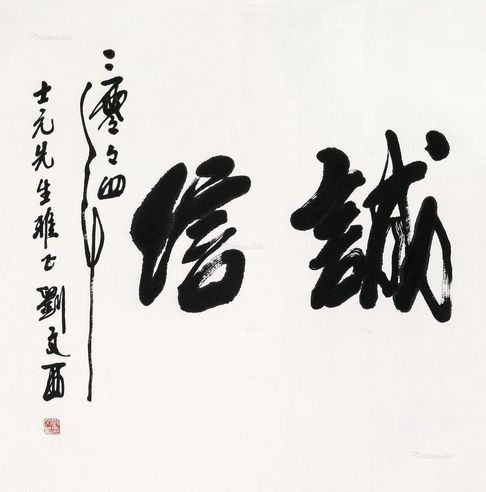 誠信
二零々四年
士元先生雅正 劉文西